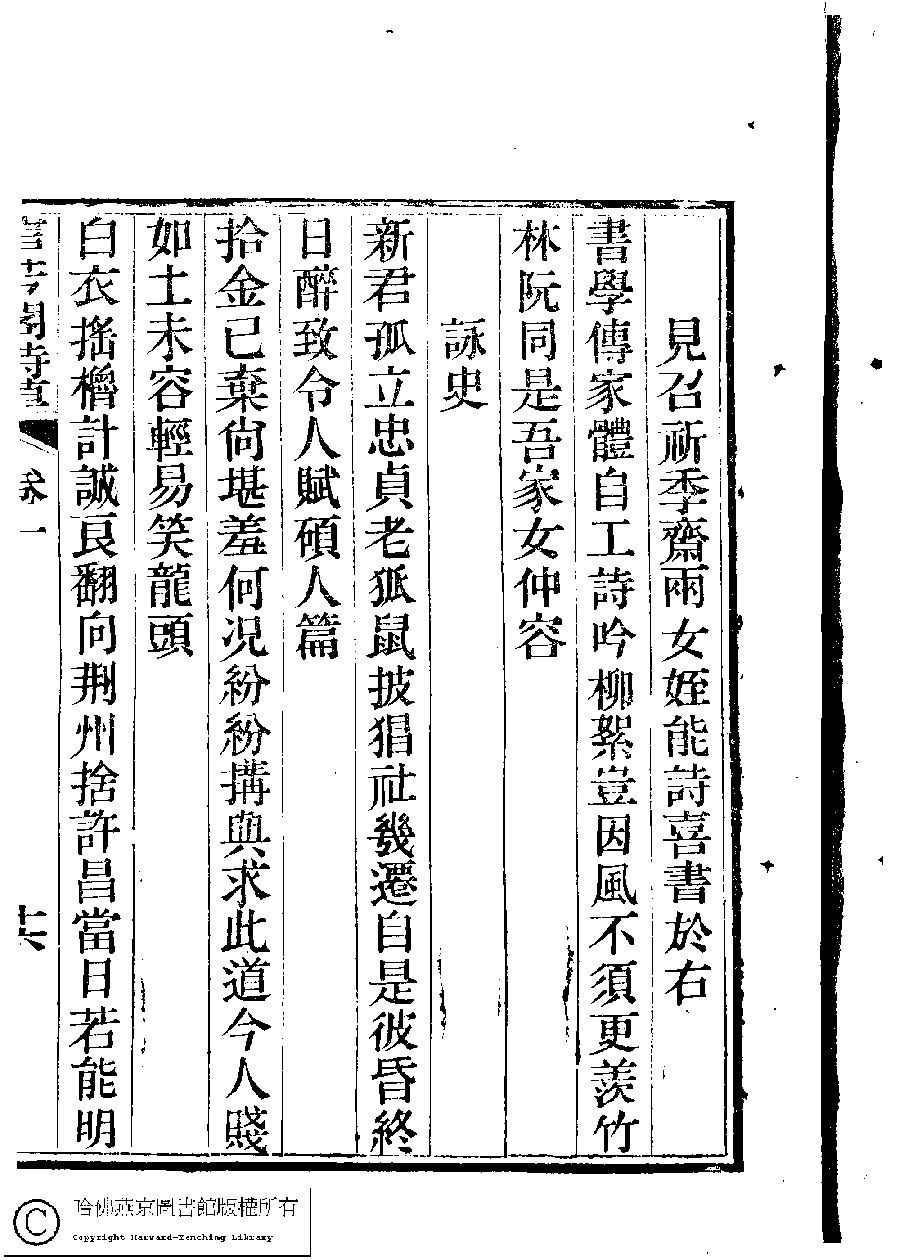 見召祈季齋兩女姪能詩喜書於右
書學傳家體自工詩吟柳絮豈因風不須更羨竹
林阮同是吾家女仲容
詠史
新君孤立忠貞老狐鼠披猖社幾遷自是彼昏終
日醉致令人賦碩人篇
拾金已棄尙堪羞何况紛紛搆與求此道今人賤
如土未容輕易笑龍頭
白衣搖櫓計誠良翻向荆州捨許昌當日若能明
卷一
十六
哈佛燕京圖書館版權所有
Copyright Harvard-Yenching Library